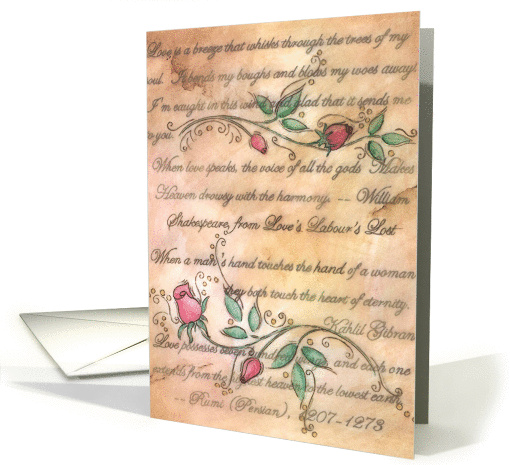 Love is a breeze that whisks through the trees of my
soul. It bends my boughs and blows my woes away!
I'm caught in this wind and glad that it sends me
to you.
When love speaks, the voice of all the gods Makes
Heaven drowsy with the harmony. -- William
Shakespeare, from Love's Labour's Lost
When a man's hand touches the hand of a woman
they both touch the heart of eternity.
Kahlil Gibran
Love possesses seven hundred and each one
extends from the highest heaven to the lowest earth.
-- Rumi (Persian), 1207-1273